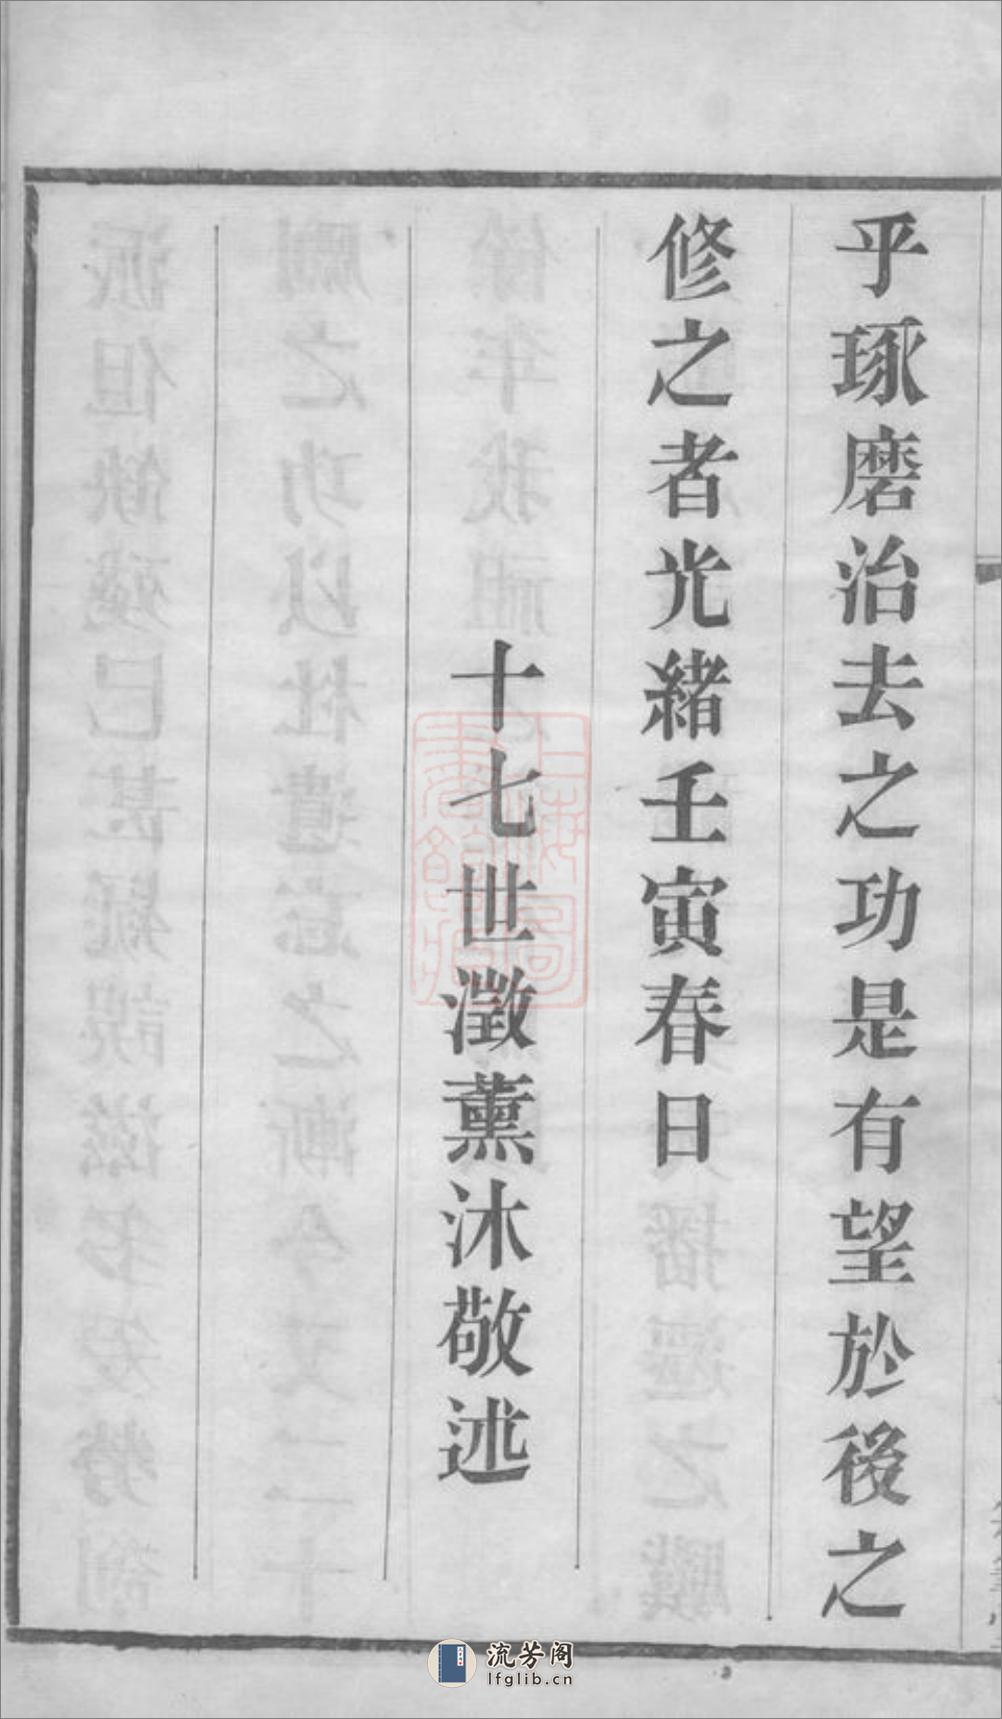 乎琢磨治去之功是有望於後之
修之者光緒壬寅春日
十七世澂薰沐敬述
流芳阁
lfglib.cn